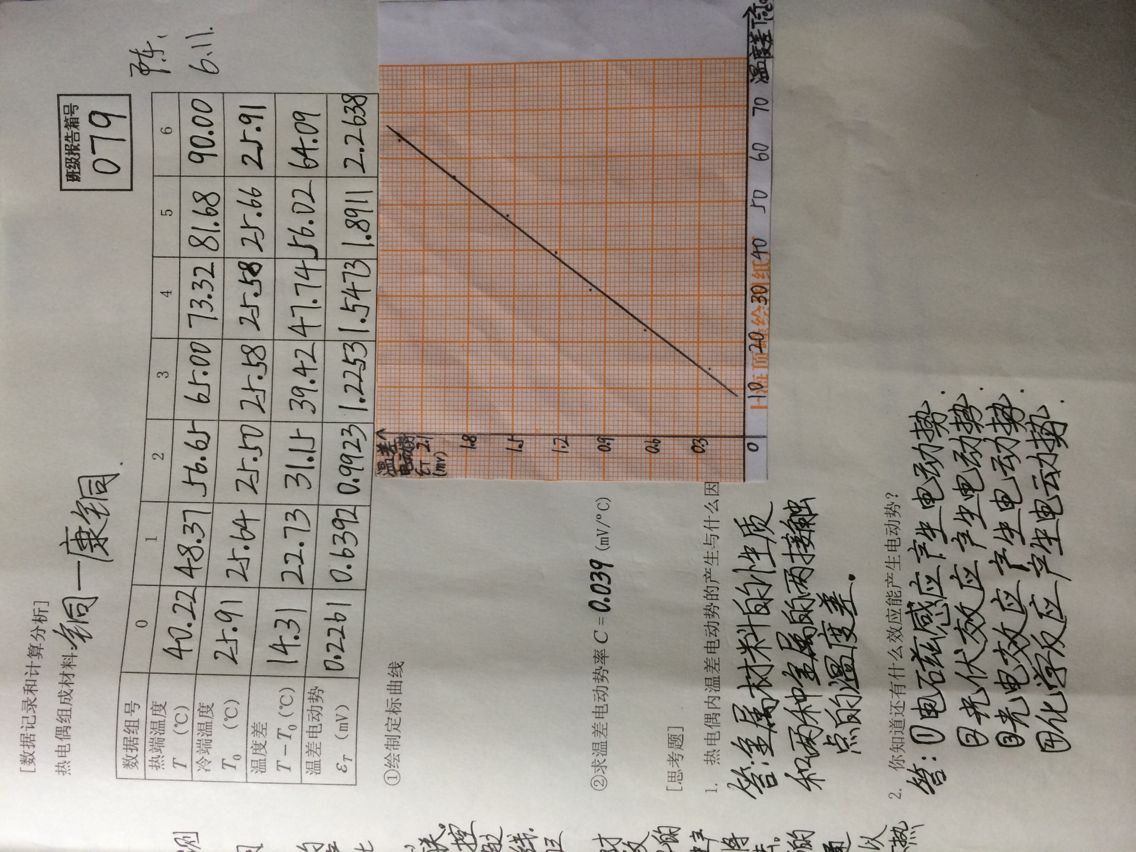 班级报告箱号
079
陈
6.11.
[数据记录和计算分析]
热电偶组成材料 铜—康铜.
数据组号 0 1 2 3 4 5 6
热端温度 T (℃) 40.22 48.37 56.65 65.00 73.32 81.68 90.00
冷端温度 T₀ (℃) 25.91 25.64 25.50 25.58 25.58 25.66 25.91
温度差 T－T₀ (℃) 14.31 22.73 31.15 39.42 47.74 56.02 64.09
温差电动势 ε_T (mV) 0.2261 0.6392 0.9923 1.2253 1.5473 1.8911 2.2638
①绘制定标曲线
温差
电动势
ε_T 2.1
(mv)
1.8
1.5
1.2
0.9
0.6
0.3
0 10 20 30 40 50 60 70 温度差
②求温差电动势率 C = 0.039 (mV/℃)
[思考题]
1. 热电偶内温差电动势的产生与什么因
答:金属材料的性质
和两种金属的两接触
点的温度差。
2. 你知道还有什么效应能产生电动势?
答:①电磁感应产生电动势.
②光伏效应产生电动势
③光电效应产生电动势.
④化学反应产生电动势.